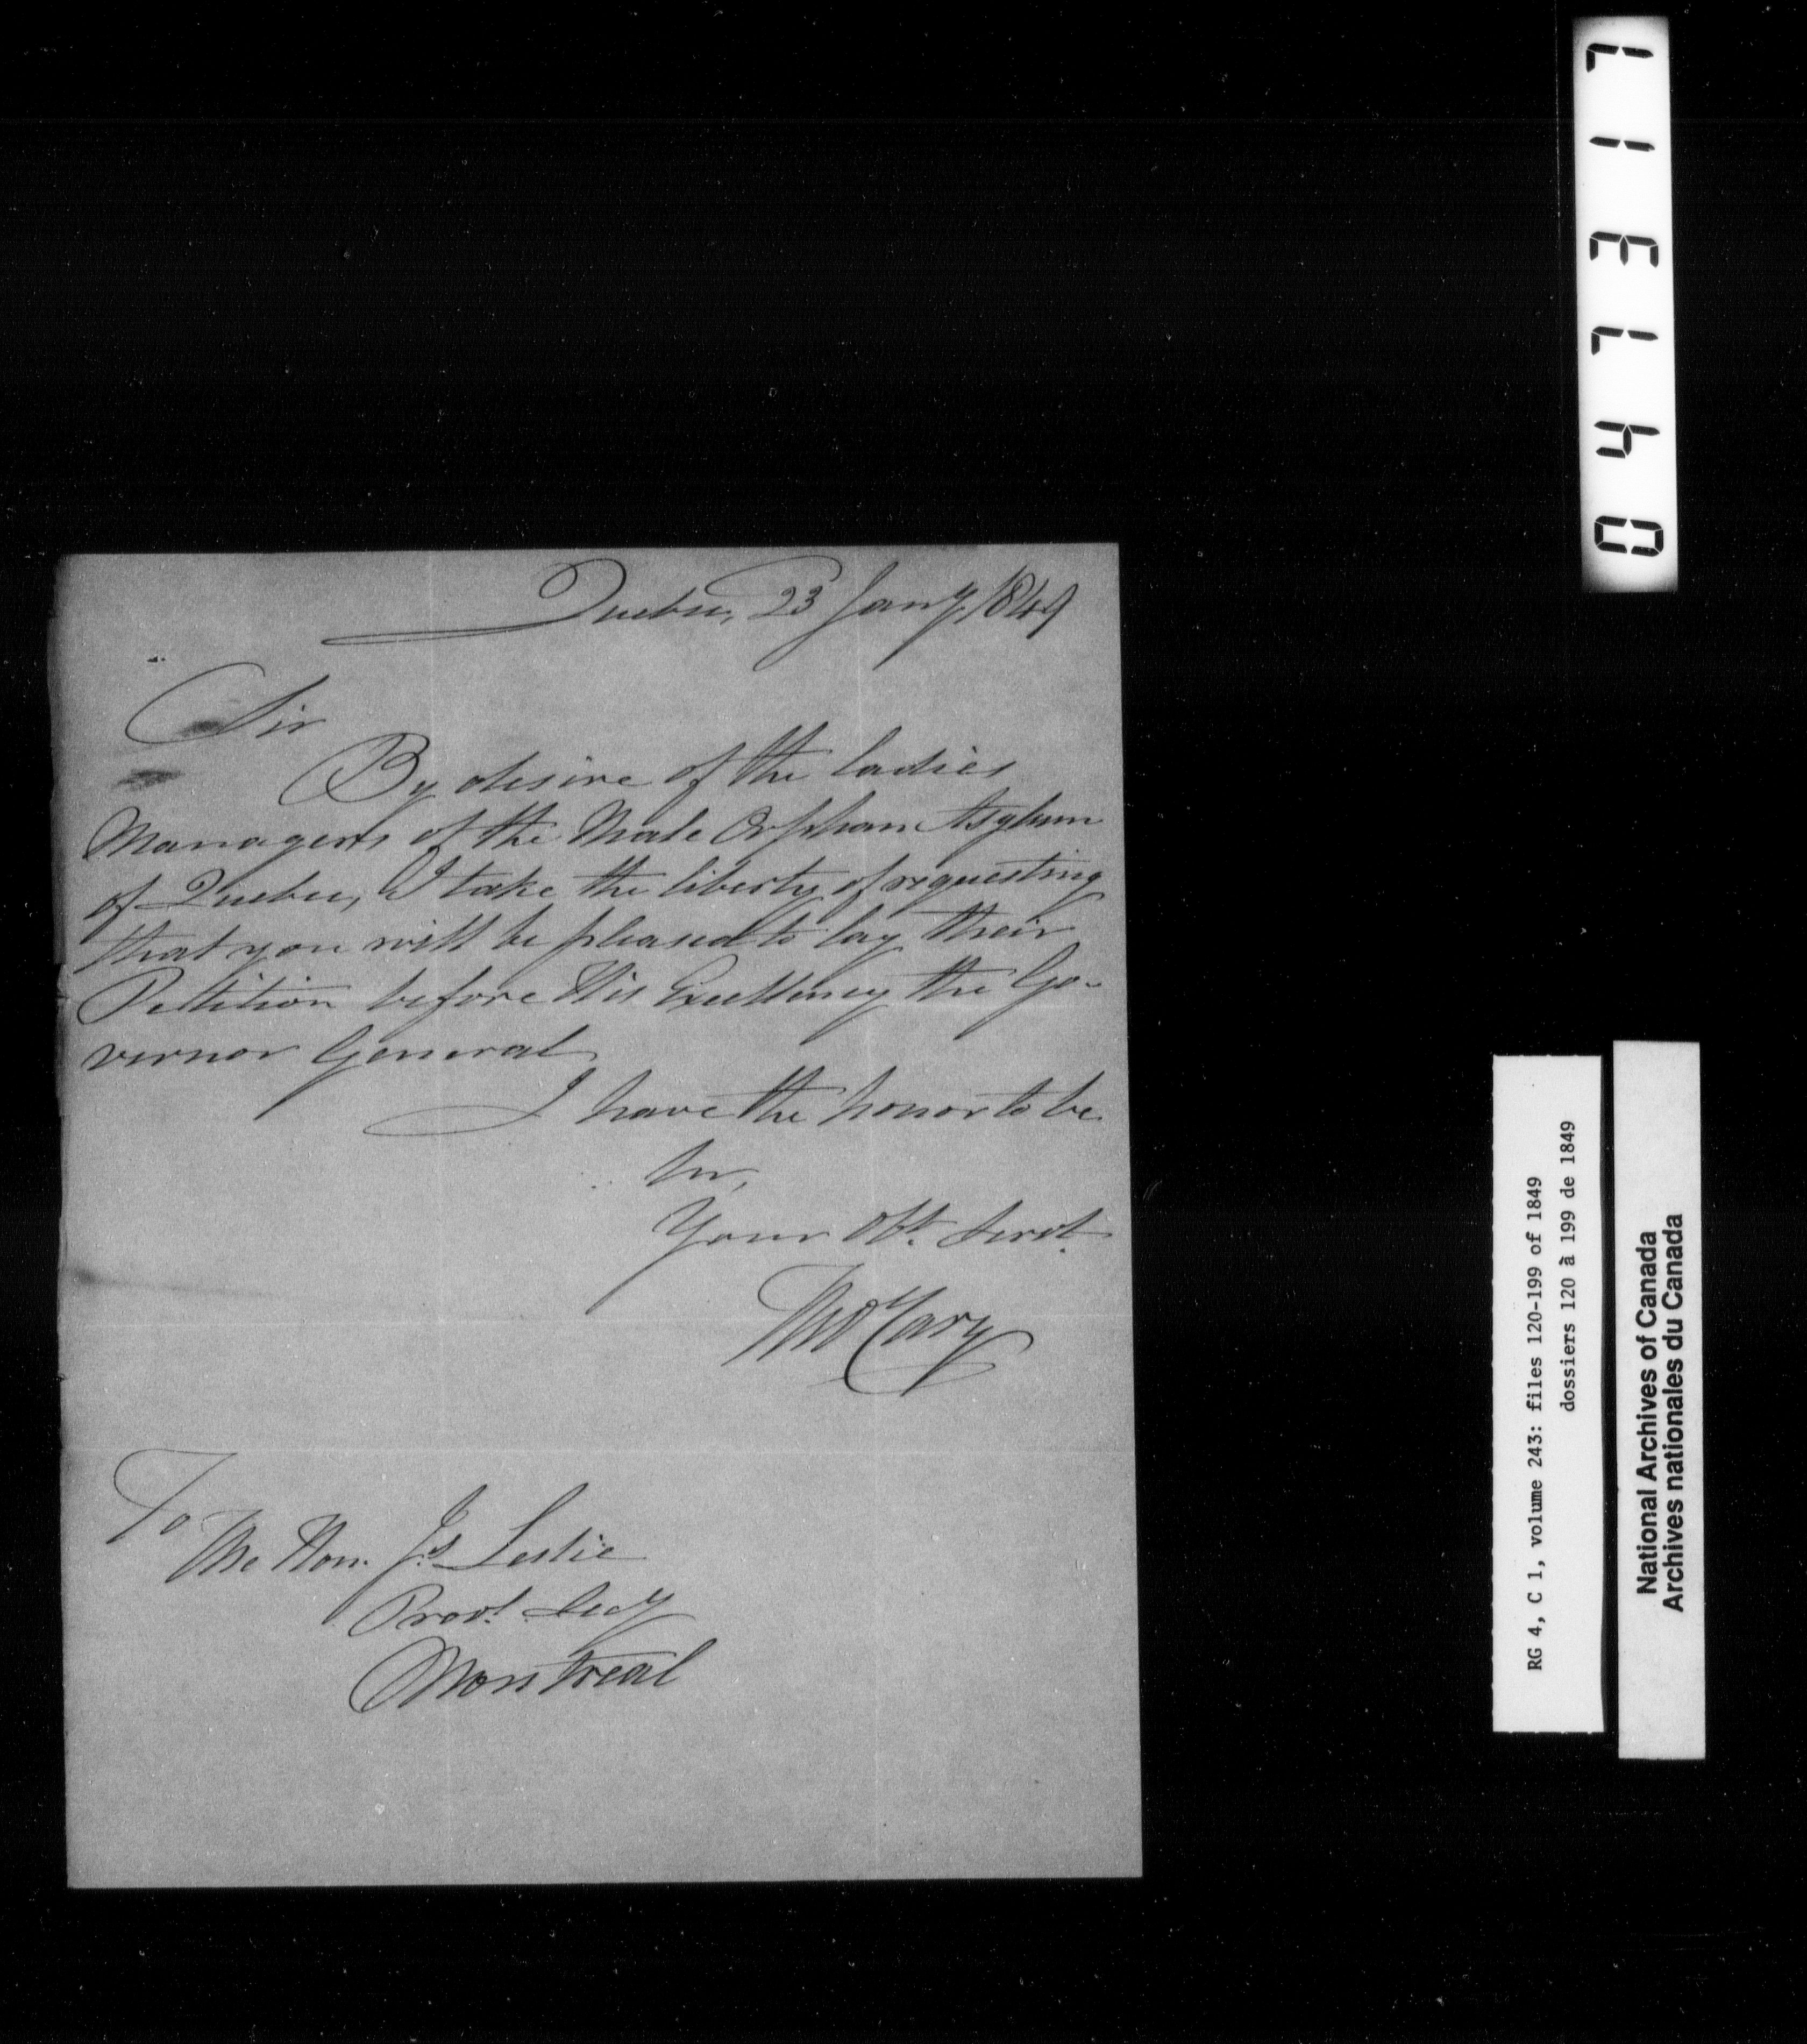 Quebec, 23 Jany 1849
Sir
By desire of the ladies
Managers of the Male Orphan Asylum
of Quebec, I take the liberty of requesting
that you will be pleased to lay their
Petition before His Excellency the Go-
vernor General
I have the honor to be
Sir,
Your Obt. Servt.
Thos Cary
To
The Hon. Js. Leslie
Provl. Secy
Montreal
047317
RG 4, C 1, volume 243: files 120-199 of 1849
dossiers 120 à 199 de 1849
National Archives of Canada
Archives nationales du Canada